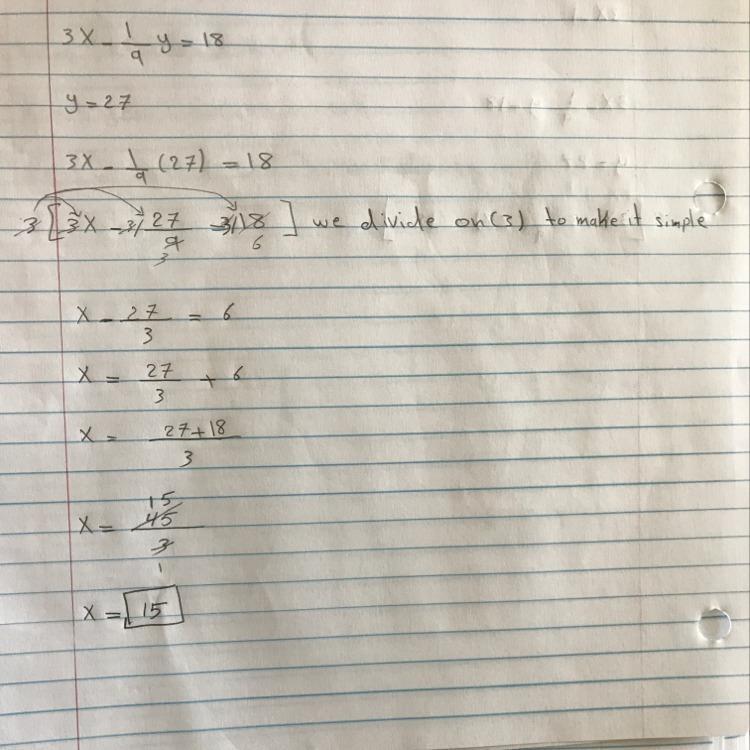 3X - 1/9 y = 18
y = 27
3X - 1/9 (27) = 18
3 [ 3X - 3/ 27/9 3 = 3/ 18 6 ] we divide on (3) to make it simple
X - 27/3 = 6
X = 27/3 + 6
X = 27+18/3
X = 45 15/3 1
X = 15